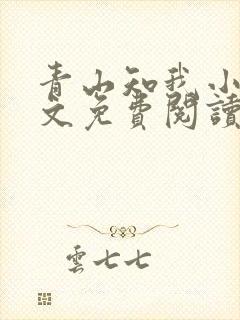 青山知我小
文免費閱讀
雲七七